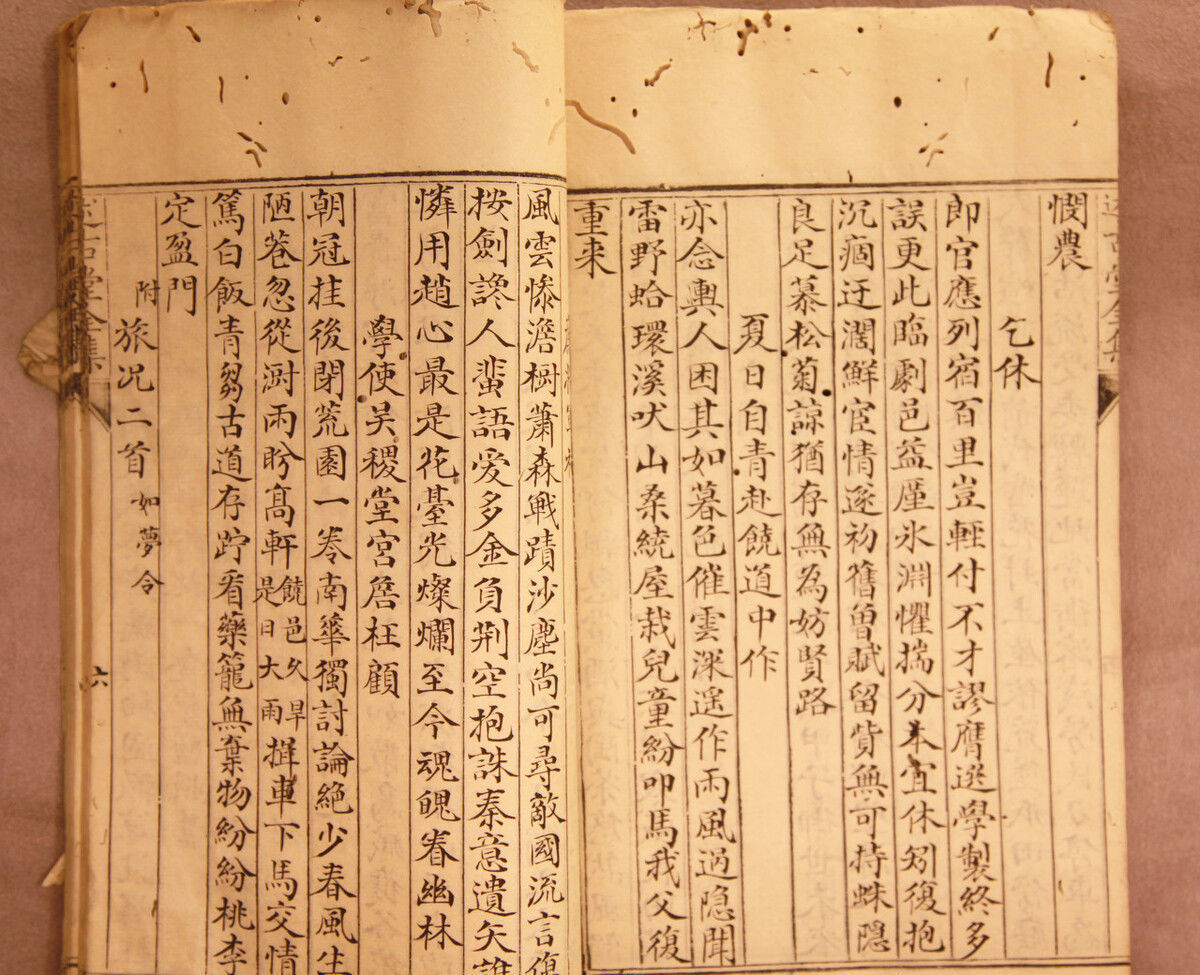 憫農
乞休
郎官應列宿百里豈輕付不才謬膺選學製終多
誤更此臨劇邑益廑氷淵懼揣分本宜休矧復抱
沉痼迂濶鮮宦情遂初舊曾賦留貲無可持蛛隱
良足慕松菊諒猶存無為妨賢路
夏日自青赴饒道中作
亦念輿人困其如暮色催雲深遥作雨風過隠聞
雷野蛤環溪吠山桑繞屋栽兒童紛叩馬我父復
重来
風雲惨澹樹蕭森戰蹟沙塵尚可尋敵國流言復
桉劍讒人蜚語爱多金負荆空抱誅秦意遺矢誰
憐用趙心最是花臺光燦爛至今魂魄眷幽林
學使吴稷堂宮詹枉顧
朝冠挂後閉荒園一卷南華獨討論絶少春風生
陋巷忽從澍雨盼髙軒饒邑久旱是日大雨揖車下馬交情
篤白飯青芻古道存竚看藥籠無棄物紛紛桃李
定盈門
附旅况二首如夢令
六